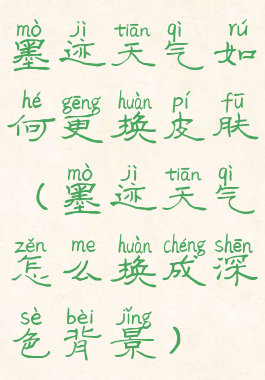 mò jì tiān qì rú
墨迹天气如
hé gēng huàn pí fū
何更换皮肤
mò jì tiān qì
（墨迹天气
zěn me huàn chéng shēn
怎么换成深
sè bèi jǐng
色背景）